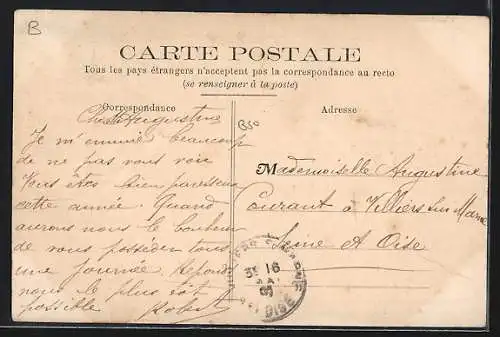 B
CARTE POSTALE
Tous les pays étrangers n'acceptent pas la correspondance au recto
(se renseigner à la poste)
Correspondance
Adresse
B50
Chère Augustine
Je m'ennuie beaucoup
de ne pas vous voir
Vous êtes bien paresseuse
cette année. Quand
aurons nous le bonheur
de vous posséder tous
une journée. Répondez
nous le plus tôt
possible Robert
Mademoiselle Augustine
Courant à Villiers sur Marne
Seine et Oise
16